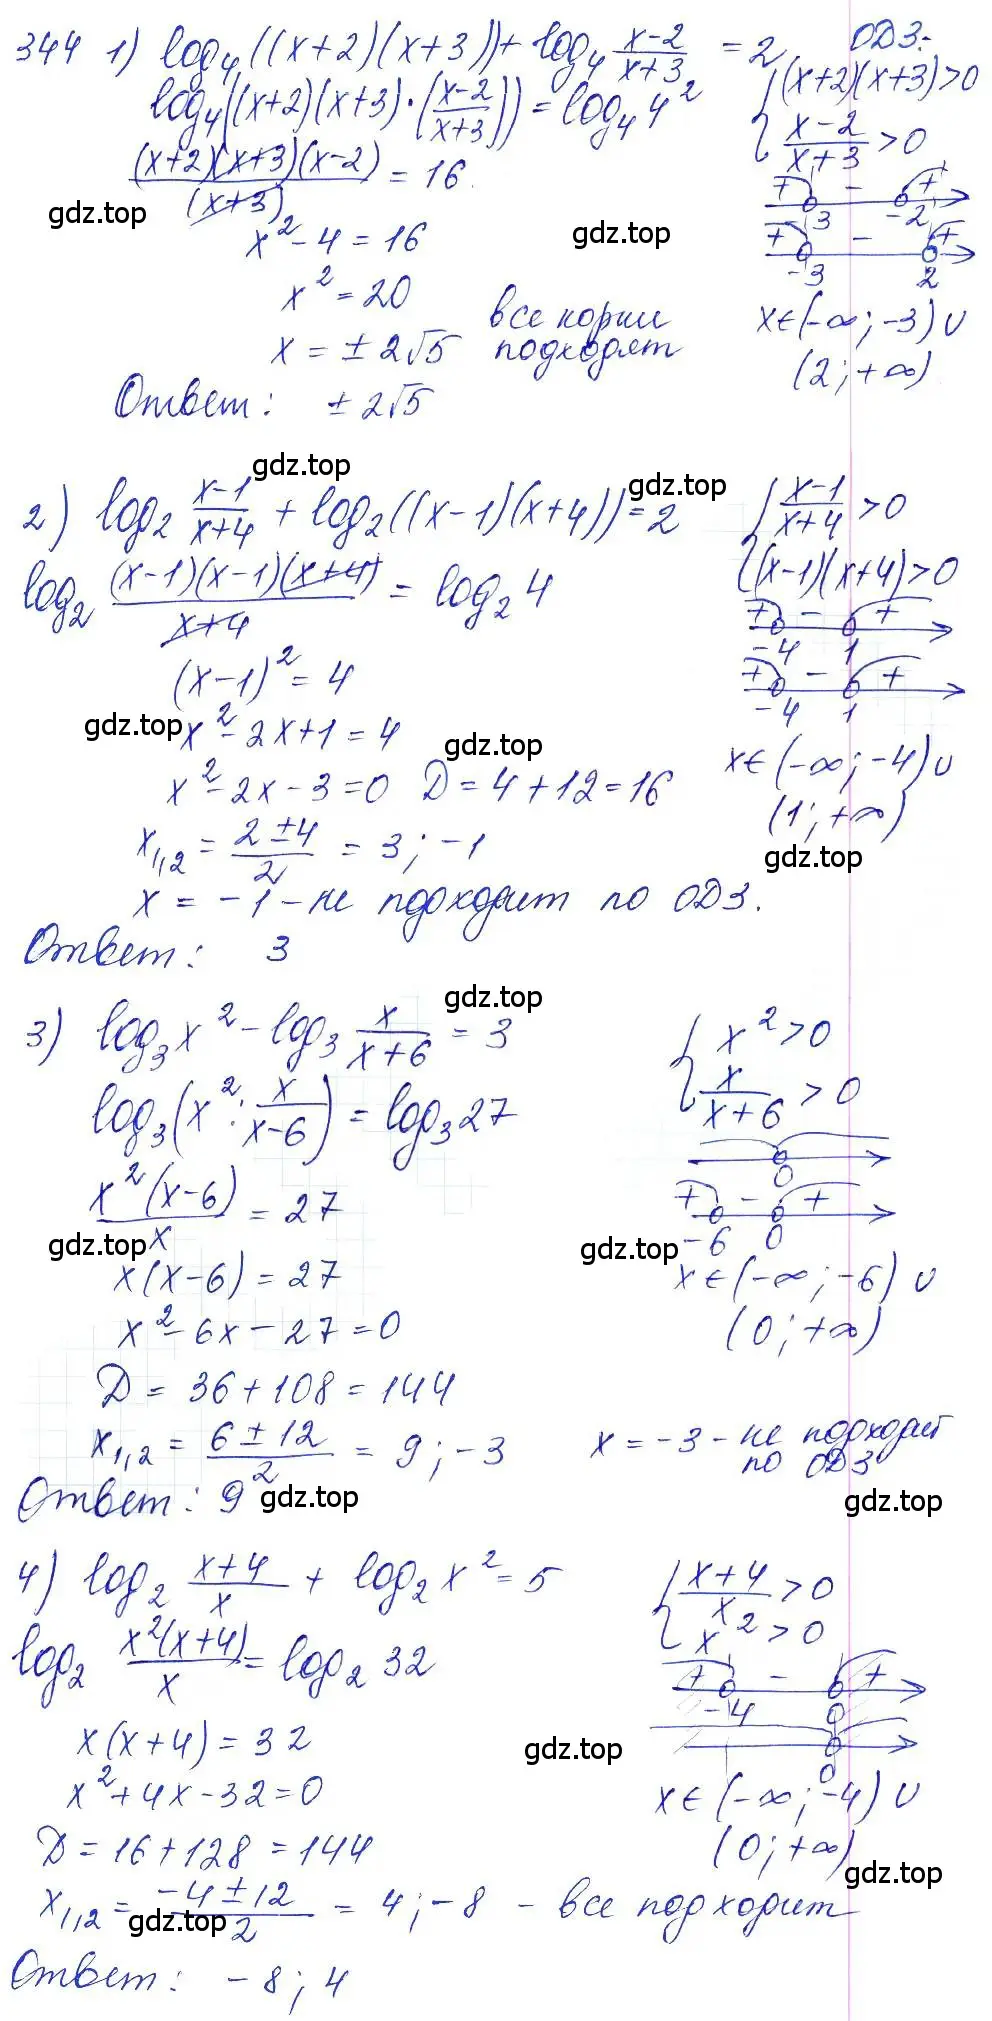 344 1) log₄((x+2)(x+3)) + log₄ (x-2)/(x+3) = 2 ОДЗ:
log₄((x+2)(x+3)·((x-2)/(x+3))) = log₄ 4²
{(x+2)(x+3)>0
(x-2)/(x+3) > 0
((x+2)(x+3)(x-2))/(x+3) = 16
+ - +
3 -2
gdz.top
x² - 4 = 16
gdz.top
+ - +
-3 2
x² = 20
x = ± 2√5
все корни подходят
x ∈ (-∞; -3) ∪
(2; +∞)
Ответ: ± 2√5
gdz.top
gdz.top
2) log₂ (x-1)/(x+4) + log₂((x-1)(x+4)) = 2
{(x-1)/(x+4) > 0
(x-1)(x+4) > 0
log₂ ((x-1)(x-1)(x+4))/(x+4) = log₂ 4
+ - +
-4 1
(x-1)² = 4
+ - +
-4 1
gdz.top
x² - 2x + 1 = 4
gdz.top
x² - 2x - 3 = 0 D = 4 + 12 = 16
x ∈ (-∞; -4) ∪
(1; +∞)
x₁,₂ = (2 ± 4)/2 = 3; -1
gdz.top
x = -1 - не подходит по ОДЗ.
Ответ: 3
gdz.top
3) log₃ x² - log₃ x/(x+6) = 3
{x² > 0
x/(x+6) > 0
log₃(x² : x/(x-6)) = log₃ 27
0
(x²(x-6))/x = 27
+ - +
-6 0
gdz.top
gdz.top
x(x-6) = 27
x ∈ (-∞; -6) ∪
(0; +∞)
x² - 6x - 27 = 0
D = 36 + 108 = 144
x₁,₂ = (6 ± 12)/2 = 9; -3
x = -3 - не подходит
по ОДЗ
Ответ: 9
gdz.top
gdz.top
4) log₂ (x+4)/x + log₂ x² = 5
{(x+4)/x > 0
x² > 0
log₂ (x²(x+4))/x = log₂ 32
+ - +
-4 0
x(x+4) = 32
gdz.top
0
x² + 4x - 32 = 0
x ∈ (-∞; -4) ∪
(0; +∞)
D = 16 + 128 = 144
gdz.top
x₁,₂ = (-4 ± 12)/2 = 4; -8 - все подходит
gdz.top
Ответ: -8; 4